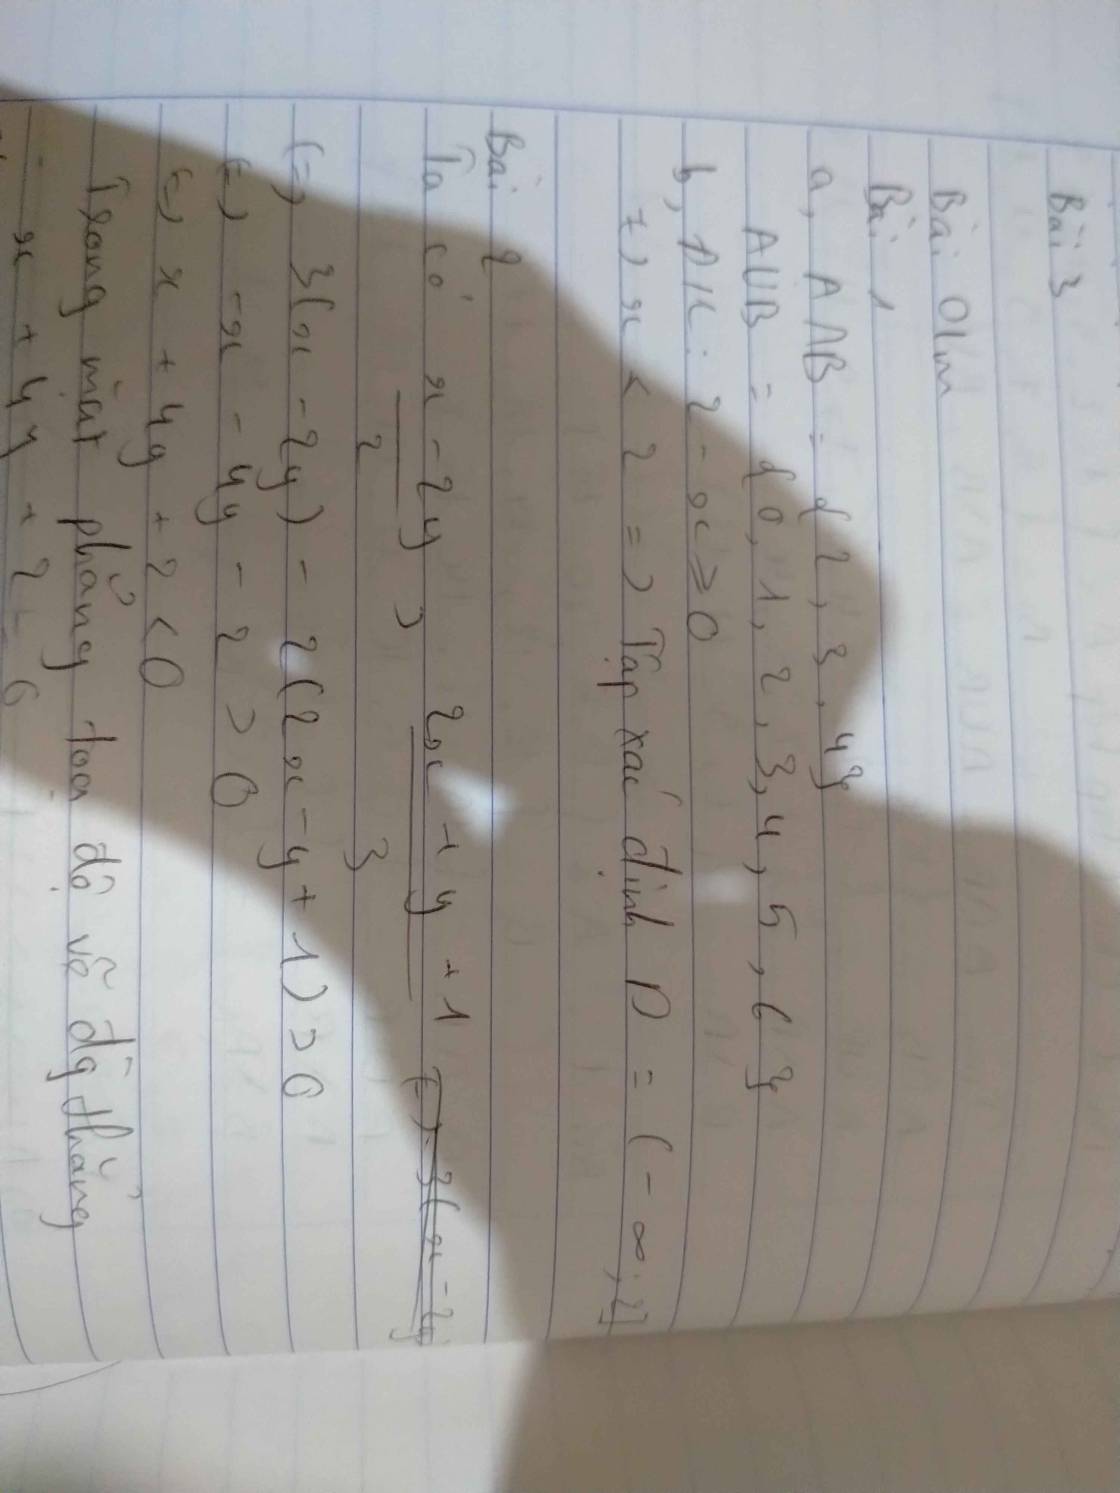 Bài 3
Bài Olm
Bài 1
a, A∩B = {2, 3, 4}
A∪B = {0, 1, 2, 3, 4, 5, 6}
b, ĐK: 2 - x ≥ 0
<=> x < 2 => Tập xác định D = (-∞; 2]
Bài 2
Ta có x - 2y / 2 > 2x - y + 1 / 3
<=> 3(x - 2y) - 2(2x - y + 1) > 0
<=> -x - 4y - 2 > 0
<=> x + 4y + 2 < 0
Trong mặt phẳng toạ độ vẽ đg thẳng
x + 4y + 2 = 0